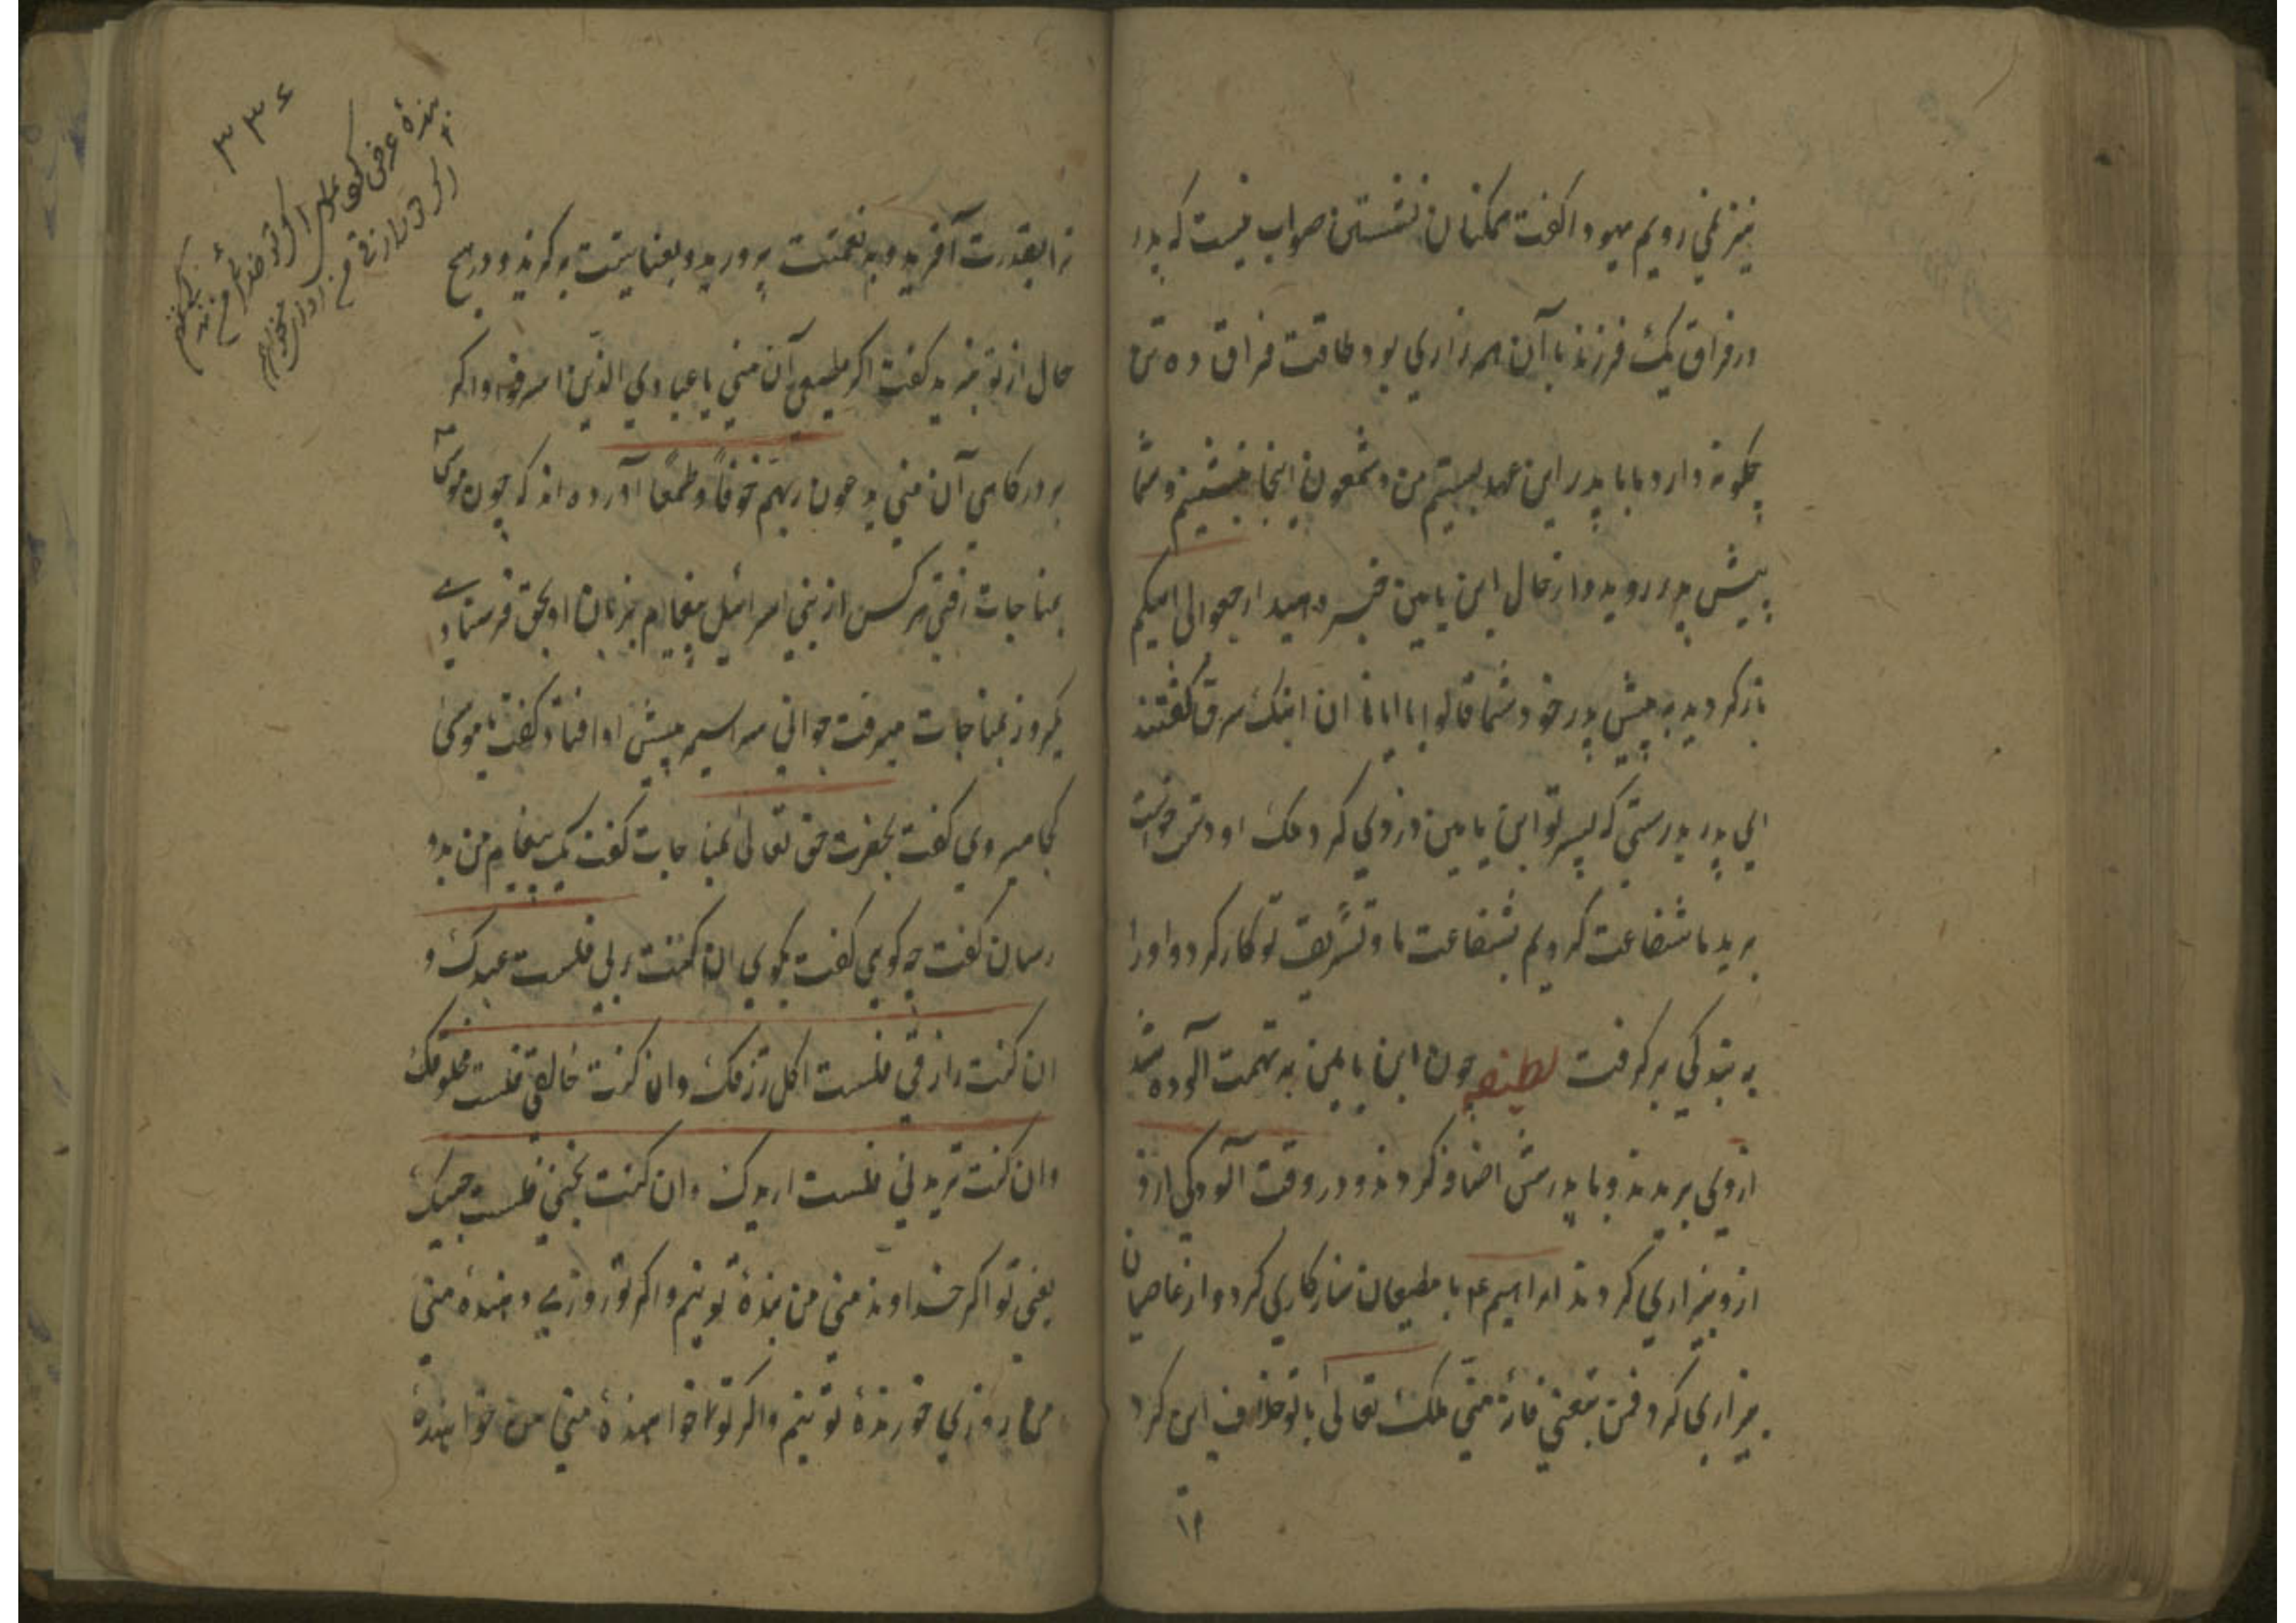 نیز نمی رویم یهودا کفت همکنان نشستن صواب نیست که پدر
در فراق یک فرزند با آن همه زاری بود طاقت فراق ده تن
چکونه دارد با پدر این عهد بستیم من و شمعون اینجا بنشینیم و شما
پیش پدر روید و از حال ابن یامین خبر دهید ارجعوا الی ابیکم
باز کردید به پیش پدر خود شما قالوا یا ابانا ان ابنک سرق کفتند
ای پدر بدرستی که پسر تو ابن یامین دزدی کرد ملک او دست
برید ما شفاعت کردیم بشفاعت ما و تشریف تو کار کرد و او را
به بندکی بر کرفت لطیفه چون ابن یامین به تهمت آلوده شد
از وی بریدند و با پدرش اضافه کردند و در وقت آلودکی از و
از و بیزاری کردند ابراهیم ع با مطیعان سازکاری کرد و از عاصیان
بیزاری کرد فمن تبعنی فانه منی ملک تعالی با تو خلاف این کرد
۱۲
۳۳۶
بندهٔ عرض کن
ترا بقدرت آفرید و به نعمتت پرورید و بعنایتت بر کزید و در هیچ
حال از تو نبرید کفت اکر مطیعی آن منی یا عبادی الذین اسرفوا و اکر
بر درکاهی آن منی یدعون ربهم خوفاً و طمعاً آورده اند که چون موسی
بمناجات رفتی هر کس از بنی اسرائیل پیغام بزبان او بحق فرستادی
یکروز بمناجات میرفت جوانی سراسیمه پیش او افتاد کفت یا موسی
کجا میروی کفت بحضرت حق تعالی بمناجات کفت یک پیغام من بدو
رسان کفت چه کویی کفت بکوی ان کنت ربی فلست عبدک و
ان کنت رازقی فلست اکل رزقک وان کنت خالقی فلست مخلوقک
وان کنت تریدنی فلست اریدک وان کنت تحبنی فلست حبیبک
یعنی تو اکر خداوند منی من بندهٔ تو نیم و اکر تو روزی دهندهٔ منی
من روزی خورندهٔ تو نیم و اکر تو خواهندهٔ منی من خواهندهٔ